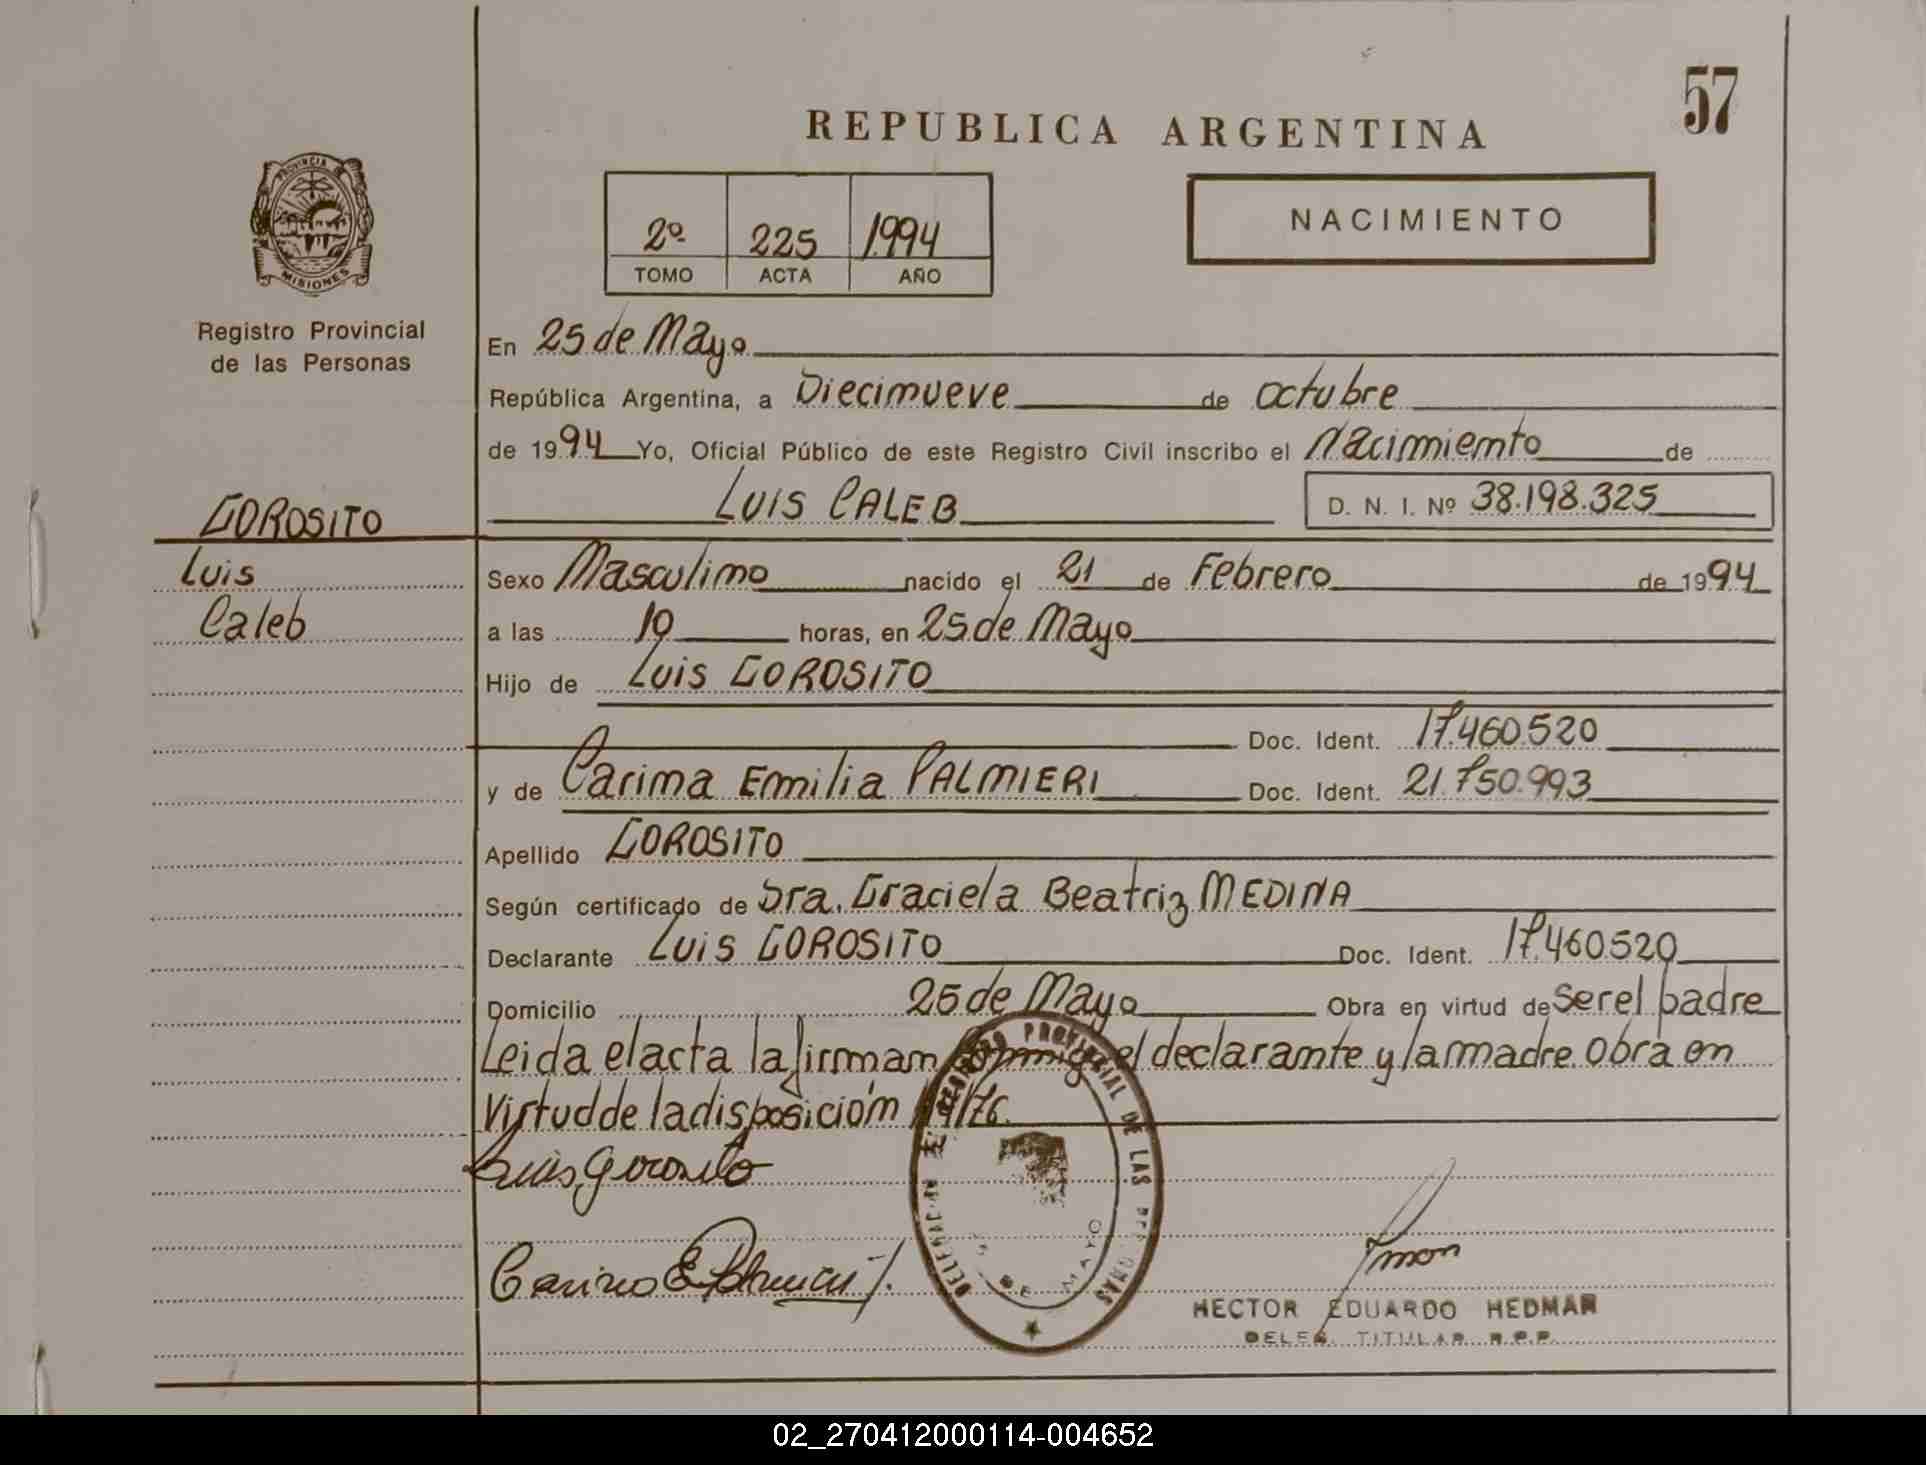 57
REPUBLICA ARGENTINA
PROVINCIA DE
MISIONES
Registro Provincial
de las Personas
2º 225 1994
TOMO ACTA AÑO
NACIMIENTO
En 25 de Mayo
República Argentina, a Diecinueve de octubre
de 1994 Yo, Oficial Público de este Registro Civil inscribo el Nacimiento de
GOROSITO
LUIS CALEB D. N. I. Nº 38.198.325
Luis
Sexo Masculino nacido el 21 de Febrero de 1994
Caleb
a las 10 horas, en 25 de Mayo
Hijo de Luis GOROSITO
Doc. Ident. 17.460.520
y de Carina Emilia PALMIERI Doc. Ident. 21.750.993
Apellido GOROSITO
Según certificado de Dra. Graciela Beatriz MEDINA
Declarante Luis GOROSITO Doc. Ident. 17.460520
Domicilio 25 de Mayo Obra en virtud de ser el padre
Leida el acta la firman conmigo el declarante y la madre. Obra en
Virtud de la disposición /76.
Luis Gorosito
Carina E. Palmieri
DELEGACION REGISTRO PROVINCIAL DE LAS PERSONAS
25 DE MAYO
HECTOR EDUARDO HEDMAN
DELEG. TITULAR R.P.P.
02_270412000114-004652